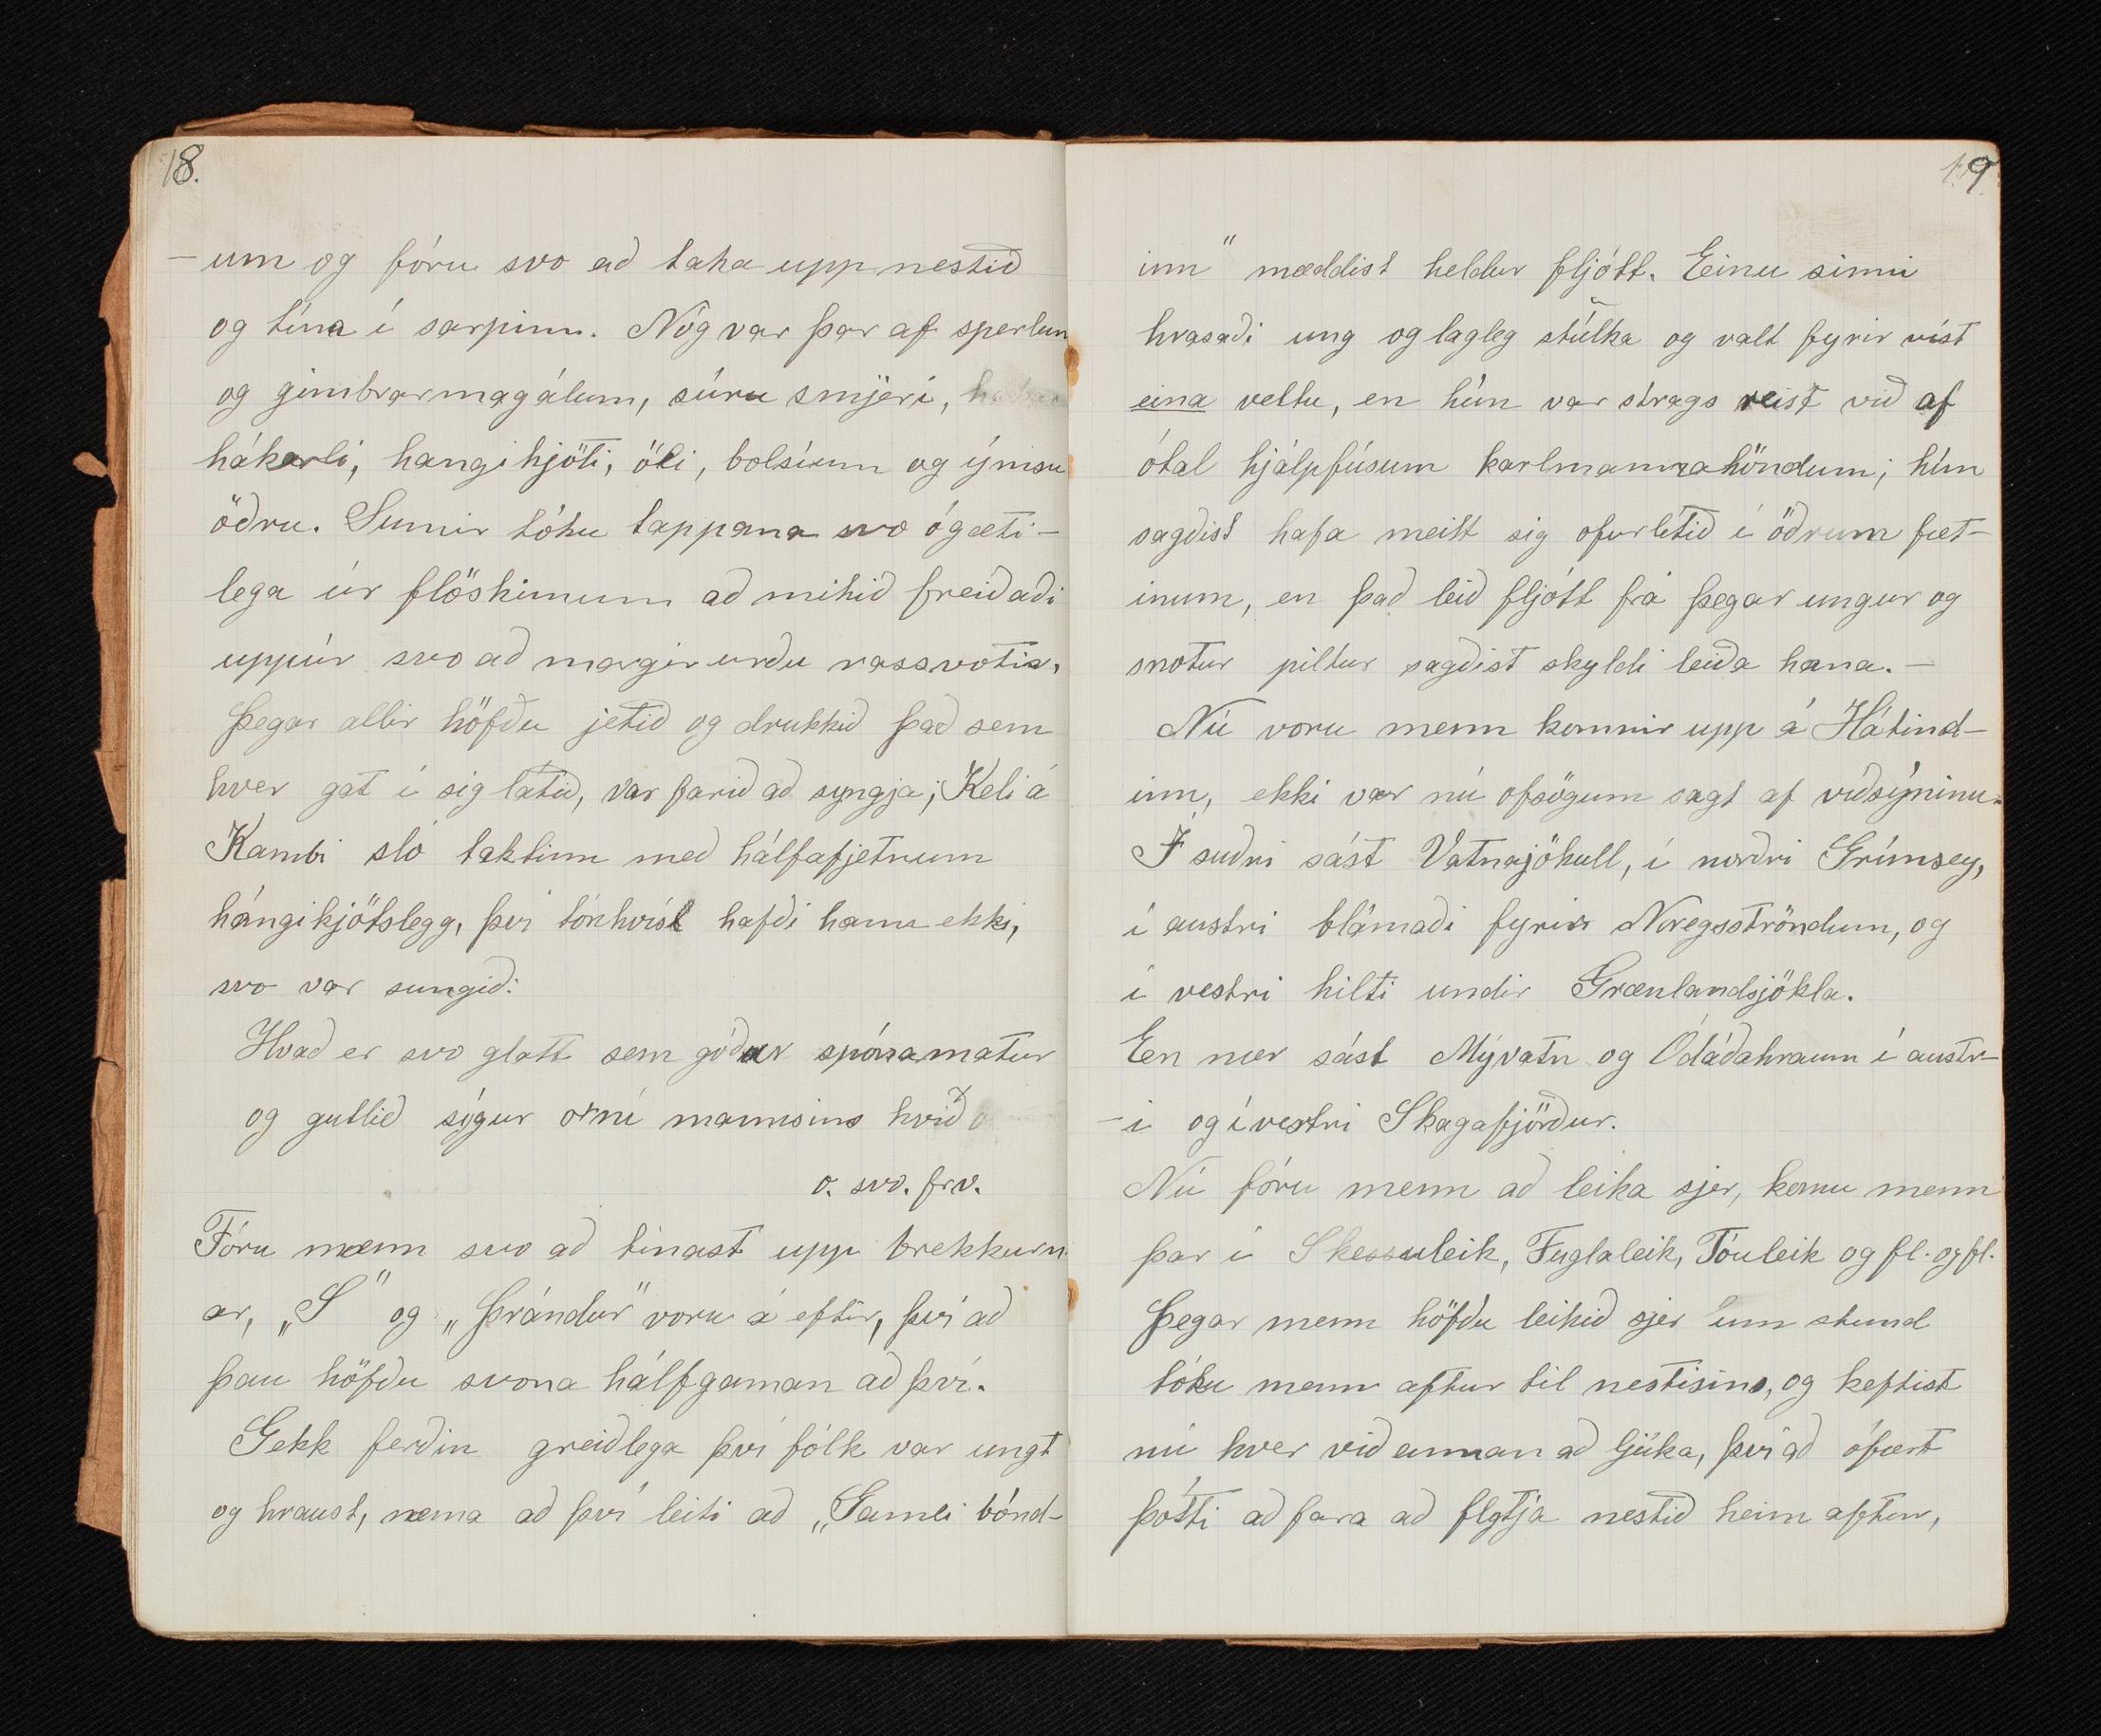 18.
-um og fóru svo að taka upp nestið
og tína í sarpinn. Nóg var þar af sperlum
og gimbrarmagálum, súru smjeri,
hákarli, hangikjöti, öli, bolsíum og ýmsu
öðru. Sumir tóku tappana svo ógæti-
lega úr flöskunum að mikið freiðaði
uppúr svo að margir urðu rassvotir,
Þegar allir höfðu jetið og drukkið það sem
hver gat í sig látið, var farið að syngja; Keli á
Kambi sló taktinn með hálfafjetnum
hángikjötslegg, því tónkvísl hafði hann ekki,
svo var sungið:
Hvað er svo glatt sem góður spónamatur
og gutlið sýgur oní mannsins kvið
o. svo. frv.
Fóru menn svo að tínast upp brekkurn
ar, „S" og „Þrándur" voru á eftir, því að
þau höfðu svona hálfgaman að því.
Gekk ferðin greiðlega því fólk var ungt
og hraust, nema að því leiti að „Gamli bónd-
19
inn" mæddist heldur fljótt. Einu sinni
hrasaði ung og lagleg stúlka og valt fyrir víst
eina veltu, en hún var strags reist við af
ótal hjálpfúsum karlmannahöndum; hún
sagðist hafa meitt sig ofurlítið í öðrum fæt-
inum, en það leið fljótt frá þegar ungur og
snotur piltur sagðist skyldi leiða hana. -
Nú voru menn komnir upp á Hátind-
inn, ekki var nú ofsögum sagt af víðsýninu.
Í suðri sást Vatnajökull, í norðri Grímsey,
í austri blámaði fyrir Noregsströndum, og
í vestri hilti undir Grænlandsjökla.
En nær sást Mývatn og Ódáðahraun í austr-
-i og í vestri Skagafjörður.
Nú fóru menn að leika sjer, komu menn
þar í Skessuleik, Fuglaleik, Tóuleik og fl. og fl.
Þegar menn höfðu leikið sjer um stund
tóku menn aftur til nestisins, og keftist
nú hver við annan að ljúka, því að ófært
þótti að fara að flytja nestið heim aftur,